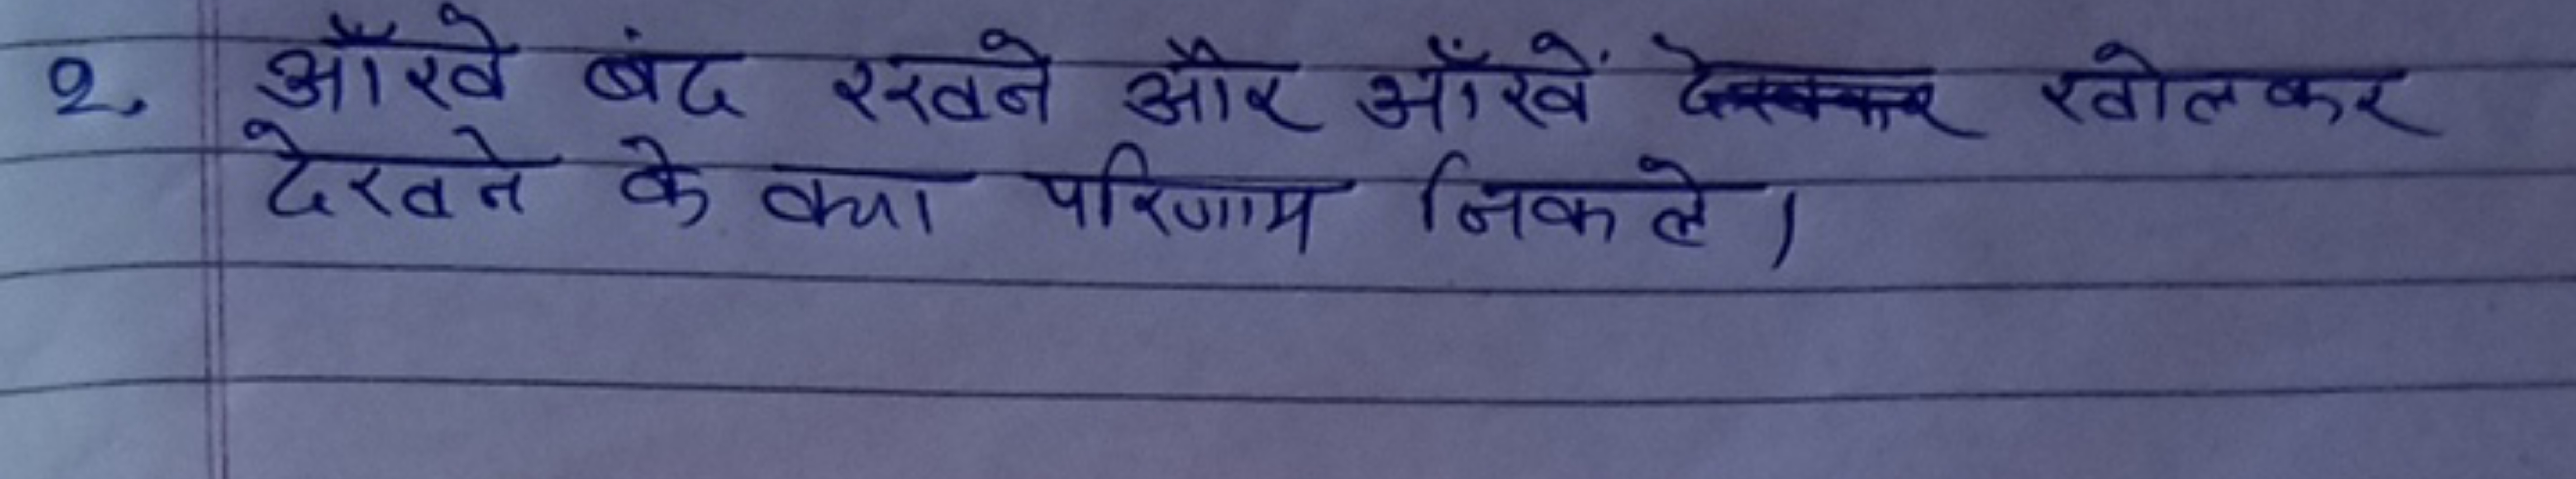 2. आँखे बंद रखने और आँखें खोलकर
देखने के क्या परिणाम निकले।